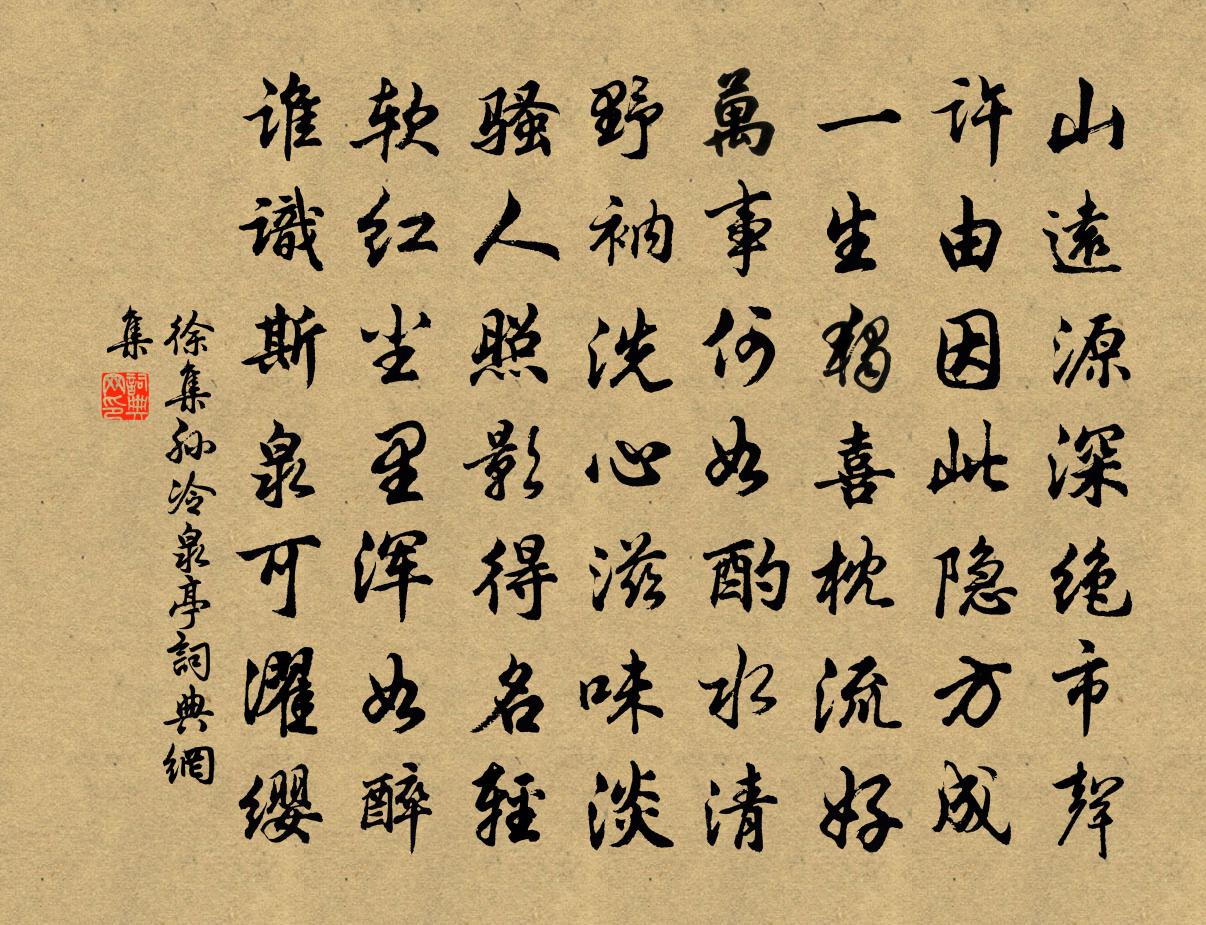 山遠源深绝市聲
许由因此隐方成
一生獨喜枕流好
萬事何如酌水清
野衲洗心滋味淡
骚人照影得名輕
软红尘里浑如醉
谁識斯泉可濯缨
徐集孙冷泉亭詞典網
集
詞典網印